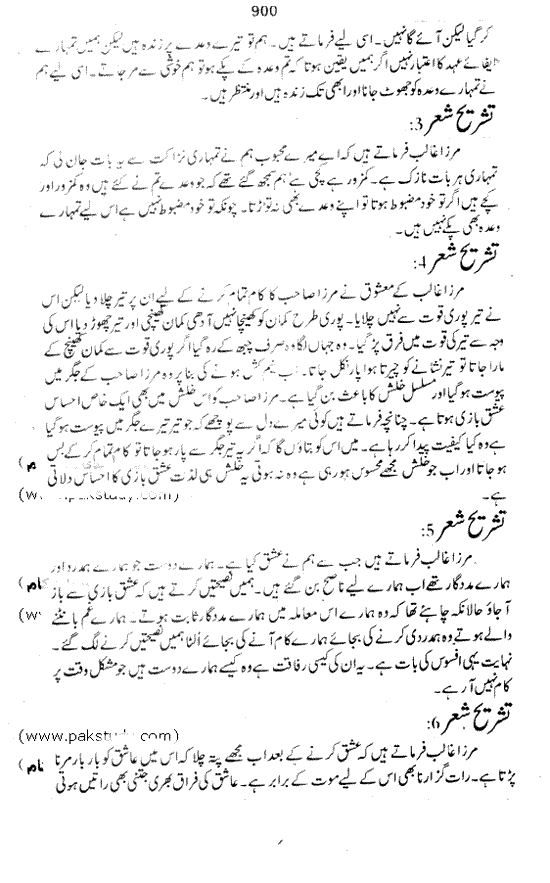 900
کر گیا لیکن آئے گا نہیں۔ اسی لیے فرماتے ہیں۔ ہم تو تیرے وعدے پر زندہ ہیں لیکن ہمیں تمہارے
ایفائے عہد کا اعتبار نہیں اگر ہمیں یقین ہوتا کہ تم وعدہ کے پکے ہو تو ہم خوشی سے مر جاتے۔ اسی لیے ہم
نے تمہارے وعدہ کو جھوٹ جانا اور ابھی تک زندہ ہیں اور منتظر ہیں۔
تشریح شعر 3:
مرزا غالب فرماتے ہیں کہ اے میرے محبوب ہم نے تمہاری نزاکت سے یہ بات جان لی کہ
تمہاری ہر بات نازک ہے۔ کمزور ہے کچی ہے ہم سمجھ گئے تھے کہ جو وعدے تم نے کئے ہیں وہ کمزور اور
کچے ہیں اگر تو خود مضبوط ہوتا تو اپنے وعدے بھی نہ توڑتا۔ چونکہ تو خود مضبوط نہیں ہے اس لیے تمہارے
وعدہ بھی پکے نہیں ہیں۔
تشریح شعر 4:
مرزا غالب کے معشوق نے مرزا صاحب کا کام تمام کرنے کے لیے ان پر تیر چلا دیا لیکن اس
نے تیر پوری قوت سے نہیں چلایا۔ پوری طرح کمان کو کھینچا نہیں آدھی کمان کھینچی اور تیر چھوڑ دیا اس کی
وجہ سے تیر کی قوت میں فرق پڑ گیا۔ وہ جہاں لگا وہ صرف چبھ کے رہ گیا اگر پوری قوت سے کمان کھینچ کے
مارا جاتا تو تیر نشانے کو چیرتا ہوا پار نکل جاتا۔ نیم کش ہونے کی بنا پر وہ مرزا صاحب کے جگر میں
پیوست ہو گیا اور مسلسل خلش کا باعث بن گیا ہے۔ مرزا صاحب کو اس خلش میں بھی ایک خاص احساس
عشق بازی ہوتا ہے۔ چنانچہ فرماتے ہیں کوئی میرے دل سے پوچھے کہ جو تیر تیرے جگر میں پیوست ہو گیا
ہے وہ کیا کیفیت پیدا کر رہا ہے۔ میں اس کو بتاؤں گا کہ اگر یہ تیر جگر سے پار ہو جاتا تو کام تمام کر کے بس
ہو جاتا اور اب جو خلش مجھے محسوس ہو رہی ہے وہ نہ ہوتی یہ خلش ہی لذت عشق بازی کا احساس دلاتی
ہے۔
(www.pakstudy.com)
تشریح شعر 5:
مرزا غالب فرماتے ہیں جب سے ہم نے عشق کیا ہے۔ ہمارے دوست جو ہمارے ہمدرد اور
ہمارے مددگار تھے اب ہمارے لیے ناصح بن گئے ہیں۔ ہمیں نصیحتیں کرتے ہیں کہ عشق بازی سے باز
آ جاؤ حالانکہ چاہئے تھا کہ وہ ہمارے اس معاملہ میں ہمارے مددگار ثابت ہوتے۔ ہمارے غم بانٹنے
والے ہوتے وہ ہمدردی کرنے کی بجائے ہمارے کام آنے کی بجائے اُلٹا ہمیں نصیحتیں کرنے لگ گئے۔
نہایت یہی افسوس کی بات ہے۔ یہ ان کی کیسی رفاقت ہے وہ کیسے ہمارے دوست ہیں جو مشکل وقت پر
کام نہیں آ رہے۔
تشریح شعر 6:
(www.pakstudy.com)
مرزا غالب فرماتے ہیں کہ عشق کرنے کے بعد اب مجھے پتہ چلا کہ اس میں عاشق کو بار بار مرنا
پڑتا ہے۔ رات گزارنا بھی اس کے لیے موت کے برابر ہے۔ عاشق کی فراق بھری جتنی بھی راتیں ہوتی